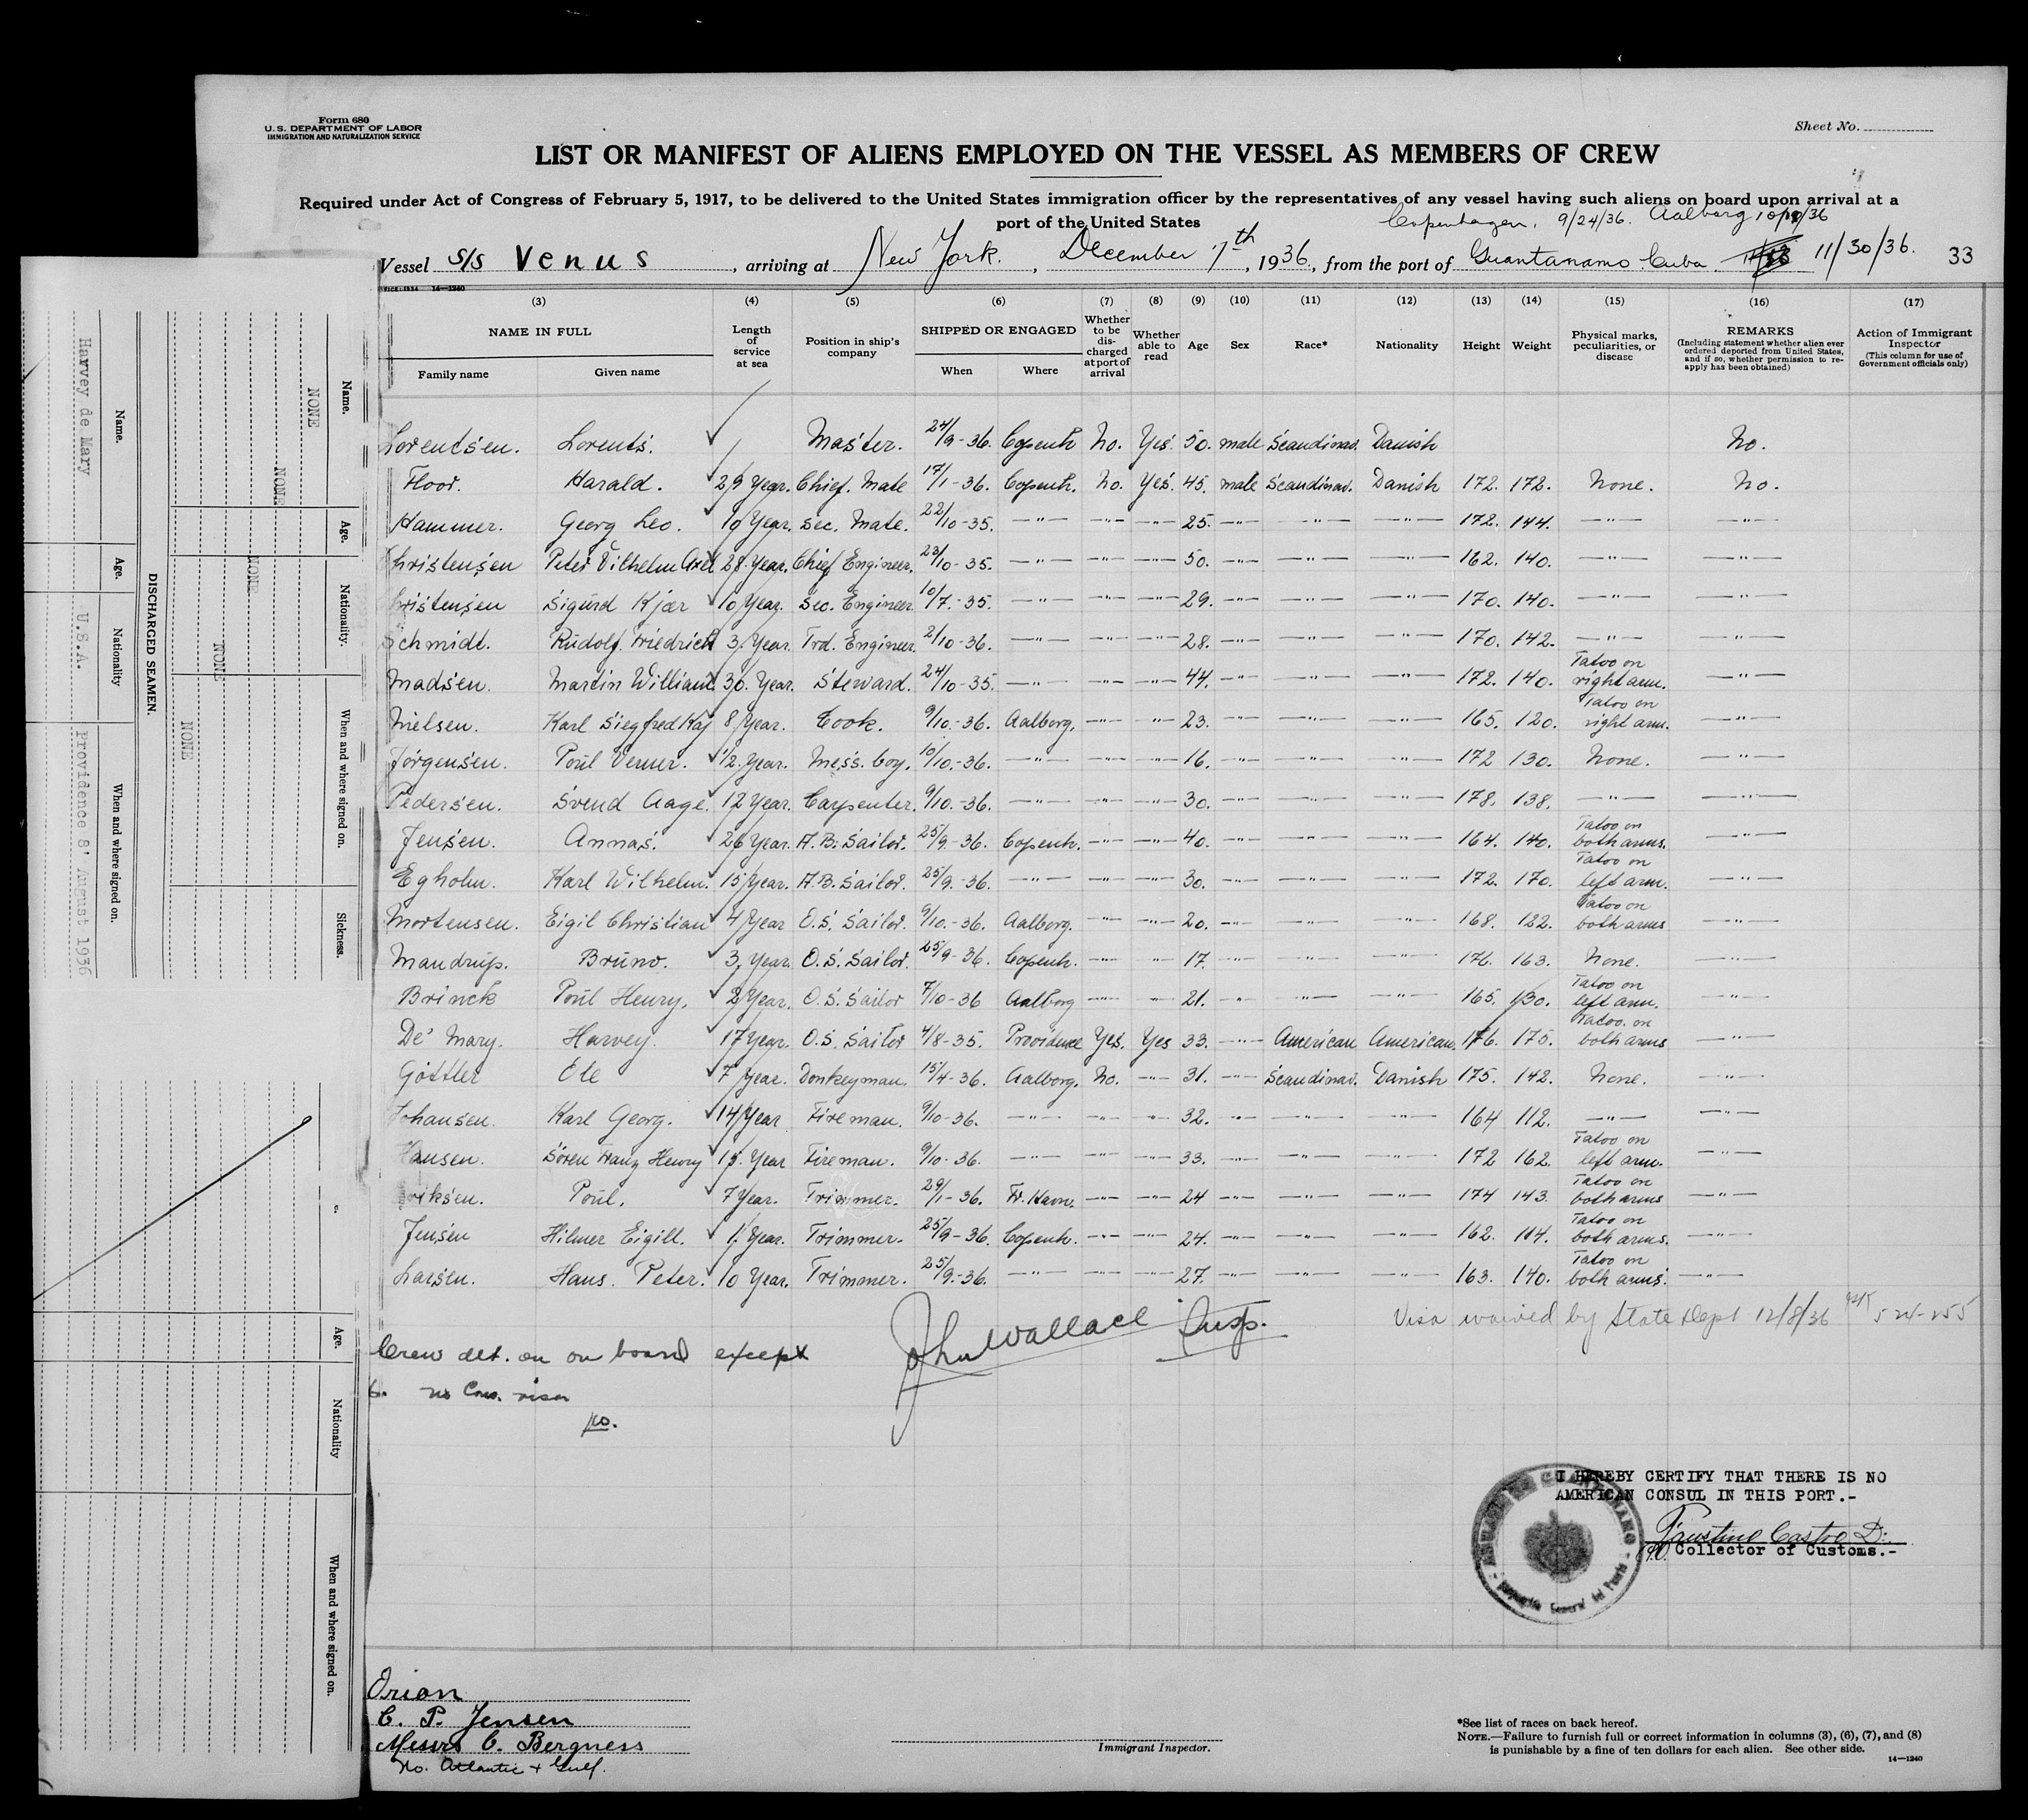 Form 680
U.S. DEPARTMENT OF LABOR
IMMIGRATION AND NATURALIZATION SERVICE
Sheet No.
LIST OR MANIFEST OF ALIENS EMPLOYED ON THE VESSEL AS MEMBERS OF CREW
Required under Act of Congress of February 5, 1917, to be delivered to the United States immigration officer by the representatives of any vessel having such aliens on board upon arrival at a
port of the United States
Copenhagen, 9/24/36. Aalborg
Vessel S/S Venus, arriving at New York, December 7th, 1936, from the port of Guantanamo Cuba 11/30/36. 33
(3) (4) (5) (6) (7) (8) (9) (10) (11) (12) (13) (14) (15) (16) (17)
NAME IN FULL Family name Given name
Length of service at sea
Position in ship's company
SHIPPED OR ENGAGED When Where
Whether to be discharged at port of arrival
Whether able to read
Age
Sex
Race*
Nationality
Height
Weight
Physical marks, peculiarities, or disease
REMARKS
(Including statement whether alien ever ordered deported from United States, and if so, whether permission to re-apply has been obtained)
Action of Immigrant Inspector
(This column for use of Government officials only)
Lorentsen. Lorents. Master. 24/9-36. Copenh No. Yes. 50. male Scandinav. Danish No.
Floor. Harald. 29 Year. Chief. Mate 17/1-36. Copenh. No. Yes. 45. male Scandinav. Danish 172. 172. None. No.
Hammer. Georg Leo. 10 Year. Sec. Mate. 22/10-35. —"— —"— —"— 25. —"— —"— —"— 172. 144. —"— —"—
Christensen Peter Vilhelm Axel 28. Year. Chief Engineer. 23/10-35. —"— —"— —"— 50. —"— —"— —"— 162. 140. —"— —"—
Christensen Sigurd Kjær 10 Year. Sec. Engineer. 10/7.-35. —"— —"— —"— 29. —"— —"— —"— 170. 140. —"— —"—
Schmidt. Rudolf. Friedrich 3. Year. Trd. Engineer. 2/10-36. —"— —"— —"— 28. —"— —"— —"— 170. 142. —"— —"—
Madsen. Martin William 30. Year. Steward. 24/10-35. —"— —"— —"— 44. —"— —"— —"— 172. 140. Tatoo on right arm. —"—
Nielsen. Karl Siegfred Kaj 8 Year. Cook. 9/10.-36. Aalborg. —"— —"— 23. —"— —"— —"— 165. 120. Tatoo on right arm. —"—
Jörgensen. Poul Verner. 1/2. Year. Mess. boy. 10/10.-36. —"— —"— —"— 16. —"— —"— —"— 172 130. None. —"—
Pedersen. Svend Aage. 12 Year. Carpenter. 9/10.-36. —"— —"— —"— 30. —"— —"— —"— 178. 138. —"— —"—
Jensen. Annas. 26 Year. A.B. Sailor. 25/9-36. Copenh. —"— —"— 40. —"— —"— —"— 164. 140. Tatoo on both arms. —"—
Egholm. Karl Wilhelm. 15 Year. A.B. Sailor. 25/9-36. —"— —"— —"— 30. —"— —"— —"— 172. 170. Tatoo on left arm. —"—
Mortensen. Eigil Christian 4 Year O.S. Sailor. 9/10.-36. Aalborg. —"— —"— 20. —"— —"— —"— 168. 122. Tatoo on both arms —"—
Mandrup. Bruno. 3. Year O.S. Sailor. 25/9-36. Copenh. —"— —"— 17. —"— —"— —"— 176. 163. None. —"—
Brinck Poul Henry. 2 Year. O.S. Sailor 7/10-36 Aalborg —"— —"— 21. —"— —"— —"— 165. 130. Tatoo on left arm. —"—
De' Mary. Harvey. 17 Year. O.S. Sailor 4/8-35. Providence Yes. Yes 33. —"— American American. 176. 175. Tatoo. on both arms —"—
Göttler Ole 7 Year. Donkeyman. 15/4-36. Aalborg. No. —"— 31. —"— Scandinav. Danish 175. 142. None. —"—
Johansen. Karl Georg. 14 Year Fireman. 9/10-36. —"— —"— —"— 32. —"— —"— —"— 164 112. —"— —"—
Hansen. Sören Franz Henry 15. Year Fireman. 9/10-36. —"— —"— —"— 33. —"— —"— —"— 172 162. Tatoo on left arm. —"—
Eriksen. Poul. 7 Year. Trimmer. 29/1-36. Fr. Havn. —"— —"— 24 —"— —"— —"— 174 143. Tatoo on both arms —"—
Jensen Hilmer Eigill. 1. Year. Trimmer. 25/9-36. Copenh. —"— —"— 24. —"— —"— —"— 162. 114. Tatoo on both arms. —"—
Larsen. Hans. Peter. 10 Year. Trimmer. 25/9.-36. —"— —"— —"— 27. —"— —"— —"— 163. 140. Tatoo on both arms. —"—
Visa waived by State Dept 12/8/36
John Wallace Insp.
Crew det. on on board except
no Cons. visa
I HEREBY CERTIFY THAT THERE IS NO
AMERICAN CONSUL IN THIS PORT.-
Faustino Castro D.
Collector of Customs.-
Orion
C. P. Jensen
Messrs C. Bergness
No. Atlantic + Gulf.
Immigrant Inspector.
*See list of races on back hereof.
NOTE.—Failure to furnish full or correct information in columns (3), (6), (7), and (8)
is punishable by a fine of ten dollars for each alien. See other side.
14—1240
Name. Age. Nationality. When and where signed on. Sickness.
NONE
NONE
NONE
NONE
NONE
DISCHARGED SEAMEN.
Name. Age. Nationality When and where signed on.
Harvey de Mary U.S.A. Providence 8' August 1936
Age. Nationality When and where signed on.